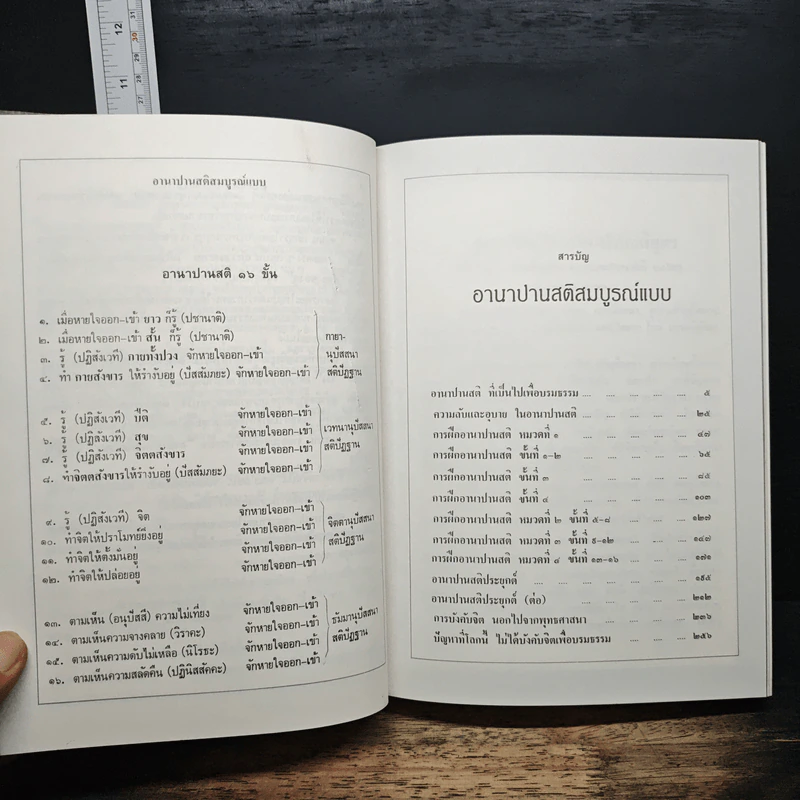 12
11
31
30
29
28
27
อานาปานสติสมบูรณ์แบบ
อานาปานสติ ๑๖ ขั้น
๑. เมื่อหายใจออก-เข้า ยาว ก็รู้ (ปชานาติ)
๒. เมื่อหายใจออก-เข้า สั้น ก็รู้ (ปชานาติ)
๓. รู้ (ปฏิสังเวที) กายทั้งปวง จักหายใจออก-เข้า
๔. ทำ กายสังขาร ให้รำงับอยู่ (ปัสสัมภยะ) จักหายใจออก-เข้า
กายา-
นุปัสสนา
สติปัฏฐาน
๕. รู้ (ปฏิสังเวที) ปีติ จักหายใจออก-เข้า
๖. รู้ (ปฏิสังเวที) สุข จักหายใจออก-เข้า
๗. รู้ (ปฏิสังเวที) จิตตสังขาร จักหายใจออก-เข้า
๘. ทำจิตตสังขารให้รำงับอยู่ (ปัสสัมภยะ) จักหายใจออก-เข้า
เวทนานุปัสสนา
สติปัฏฐาน
๙. รู้ (ปฏิสังเวที) จิต จักหายใจออก-เข้า
๑๐. ทำจิตให้ปราโมทย์ยิ่งอยู่ จักหายใจออก-เข้า
๑๑. ทำจิตให้ตั้งมั่นอยู่ จักหายใจออก-เข้า
๑๒. ทำจิตให้ปล่อยอยู่ จักหายใจออก-เข้า
จิตตานุปัสสนา
สติปัฏฐาน
๑๓. ตามเห็น (อนุปัสสี) ความไม่เที่ยง จักหายใจออก-เข้า
๑๔. ตามเห็นความจางคลาย (วิราคะ) จักหายใจออก-เข้า
๑๕. ตามเห็นความดับไม่เหลือ (นิโรธะ) จักหายใจออก-เข้า
๑๖. ตามเห็นความสลัดคืน (ปฏินิสสัคคะ) จักหายใจออก-เข้า
ธัมมานุปัสสนา
สติปัฏฐาน
สารบัญ
อานาปานสติสมบูรณ์แบบ
อานาปานสติ ที่เป็นไปเพื่อบรมธรรม .... .... .... .... ๕
ความลับและอุบาย ในอานาปานสติ .... .... .... .... ๒๕
การฝึกอานาปานสติ หมวดที่ ๑ .... .... .... .... .... ๔๗
การฝึกอานาปานสติ ขั้นที่ ๑-๒ .... .... .... .... .... ๖๕
การฝึกอานาปานสติ ขั้นที่ ๓ .... .... .... .... .... ๘๕
การฝึกอานาปานสติ ขั้นที่ ๔ .... .... .... .... .... ๑๐๓
การฝึกอานาปานสติ หมวดที่ ๒ ขั้นที่ ๕-๘ .... .... .... ๑๒๗
การฝึกอานาปานสติ หมวดที่ ๓ ขั้นที่ ๙-๑๒ .... .... .... ๑๔๗
การฝึกอานาปานสติ หมวดที่ ๔ ขั้นที่ ๑๓-๑๖ .... .... .... ๑๗๑
อานาปานสติประยุกต์ .... .... .... .... .... .... ๑๙๕
อานาปานสติประยุกต์ (ต่อ) .... .... .... .... .... ๒๑๒
การบังคับจิต นอกไปจากพุทธศาสนา .... .... .... .... ๒๓๖
ปัญหาที่โลกนี้ ไม่ได้บังคับจิตเพื่อบรมธรรม .... .... .... ๒๕๖